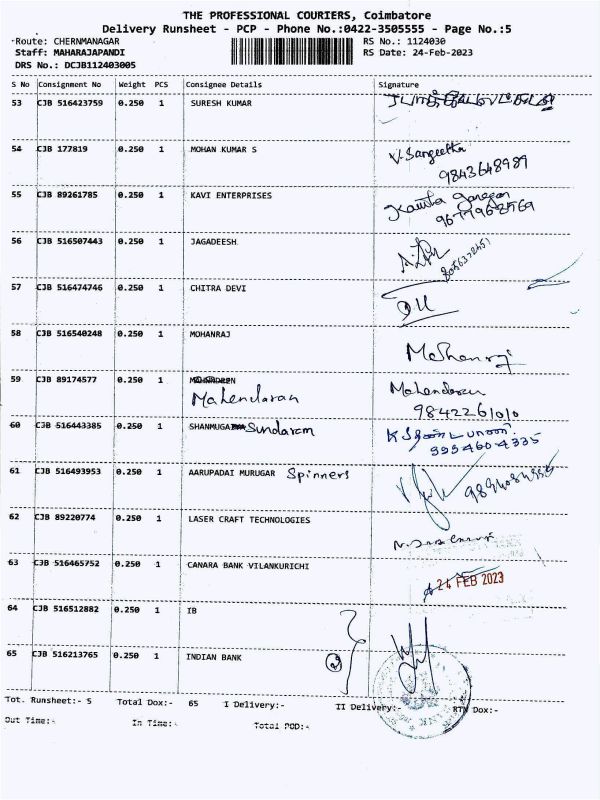 THE PROFESSIONAL COURIERS, Coimbatore
Delivery Runsheet - PCP - Phone No.:0422-3505555 - Page No.:5
Route: CHERNMANAGAR RS No.: 1124030
Staff: MAHARAJAPANDI RS Date: 24-Feb-2023
DRS No.: DCJB112403005
S No Consignment No Weight PCS Consignee Details Signature
53 CJB 516423759 0.250 1 SURESH KUMAR
54 CJB 177819 0.250 1 MOHAN KUMAR S V. Sangeetha
9843648989
55 CJB 89261785 0.250 1 KAVI ENTERPRISES
56 CJB 516507443 0.250 1 JAGADEESH
57 CJB 516474746 0.250 1 CHITRA DEVI
58 CJB 516540248 0.250 1 MOHANRAJ Mohanraj
59 CJB 89174577 0.250 1
Mahendaran Mahendaran
9842261010
60 CJB 516443385 0.250 1 SHANMUGA Sundaram
9954604335
61 CJB 516493953 0.250 1 AARUPADAI MURUGAR Spinners
62 CJB 89220774 0.250 1 LASER CRAFT TECHNOLOGIES
63 CJB 516465752 0.250 1 CANARA BANK VILANKURICHI 24 FEB 2023
64 CJB 516512882 0.250 1 IB
65 CJB 516213765 0.250 1 INDIAN BANK 2
Tot. Runsheet:- S Total Dox:- 65 I Delivery:- II Delivery:- RTN Dox:-
Out Time:- In Time:- Total POD:-